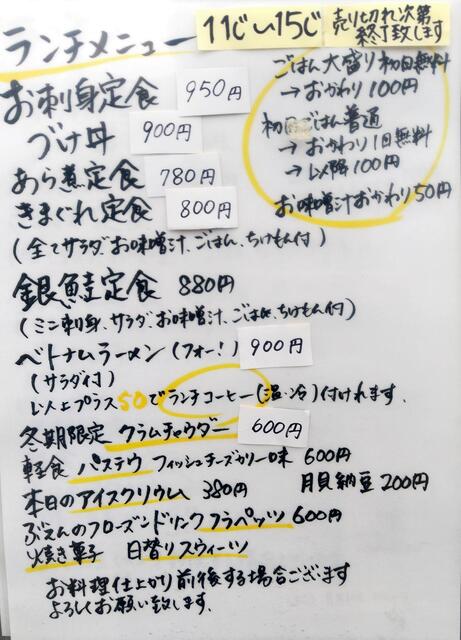 ランチメニュー 11じ〜15じ 売り切れ次第
終了致します
お刺身定食 950円
づけ丼 900円
あら煮定食 780円
きまぐれ定食 800円
(全てサラダ、お味噌汁、ごはん、つけもん付)
ごはん大盛り初回無料
→おかわり100円
初回ごはん普通
→おかわり1回無料
→以降100円
お味噌汁おかわり50円
銀鮭定食 880円
(ミニ刺身、サラダ、お味噌汁、ごはん、つけもん付)
ベトナムラーメン(フォー!) 900円
(サラダ付)
以上プラス50でランチコーヒー(温・冷)付けれます。
冬期限定 クラムチャウダー 600円
軽食 パステウ フィッシュチーズカリー味 600円
本日のアイスクリゥム 380円 月貝納豆 200円
ぶえんのフローズンドリンク フラペッツ 600円
焼き菓子 日替りスウィーツ
お料理仕上がり前後する場合ございます
よろしくお願い致します。